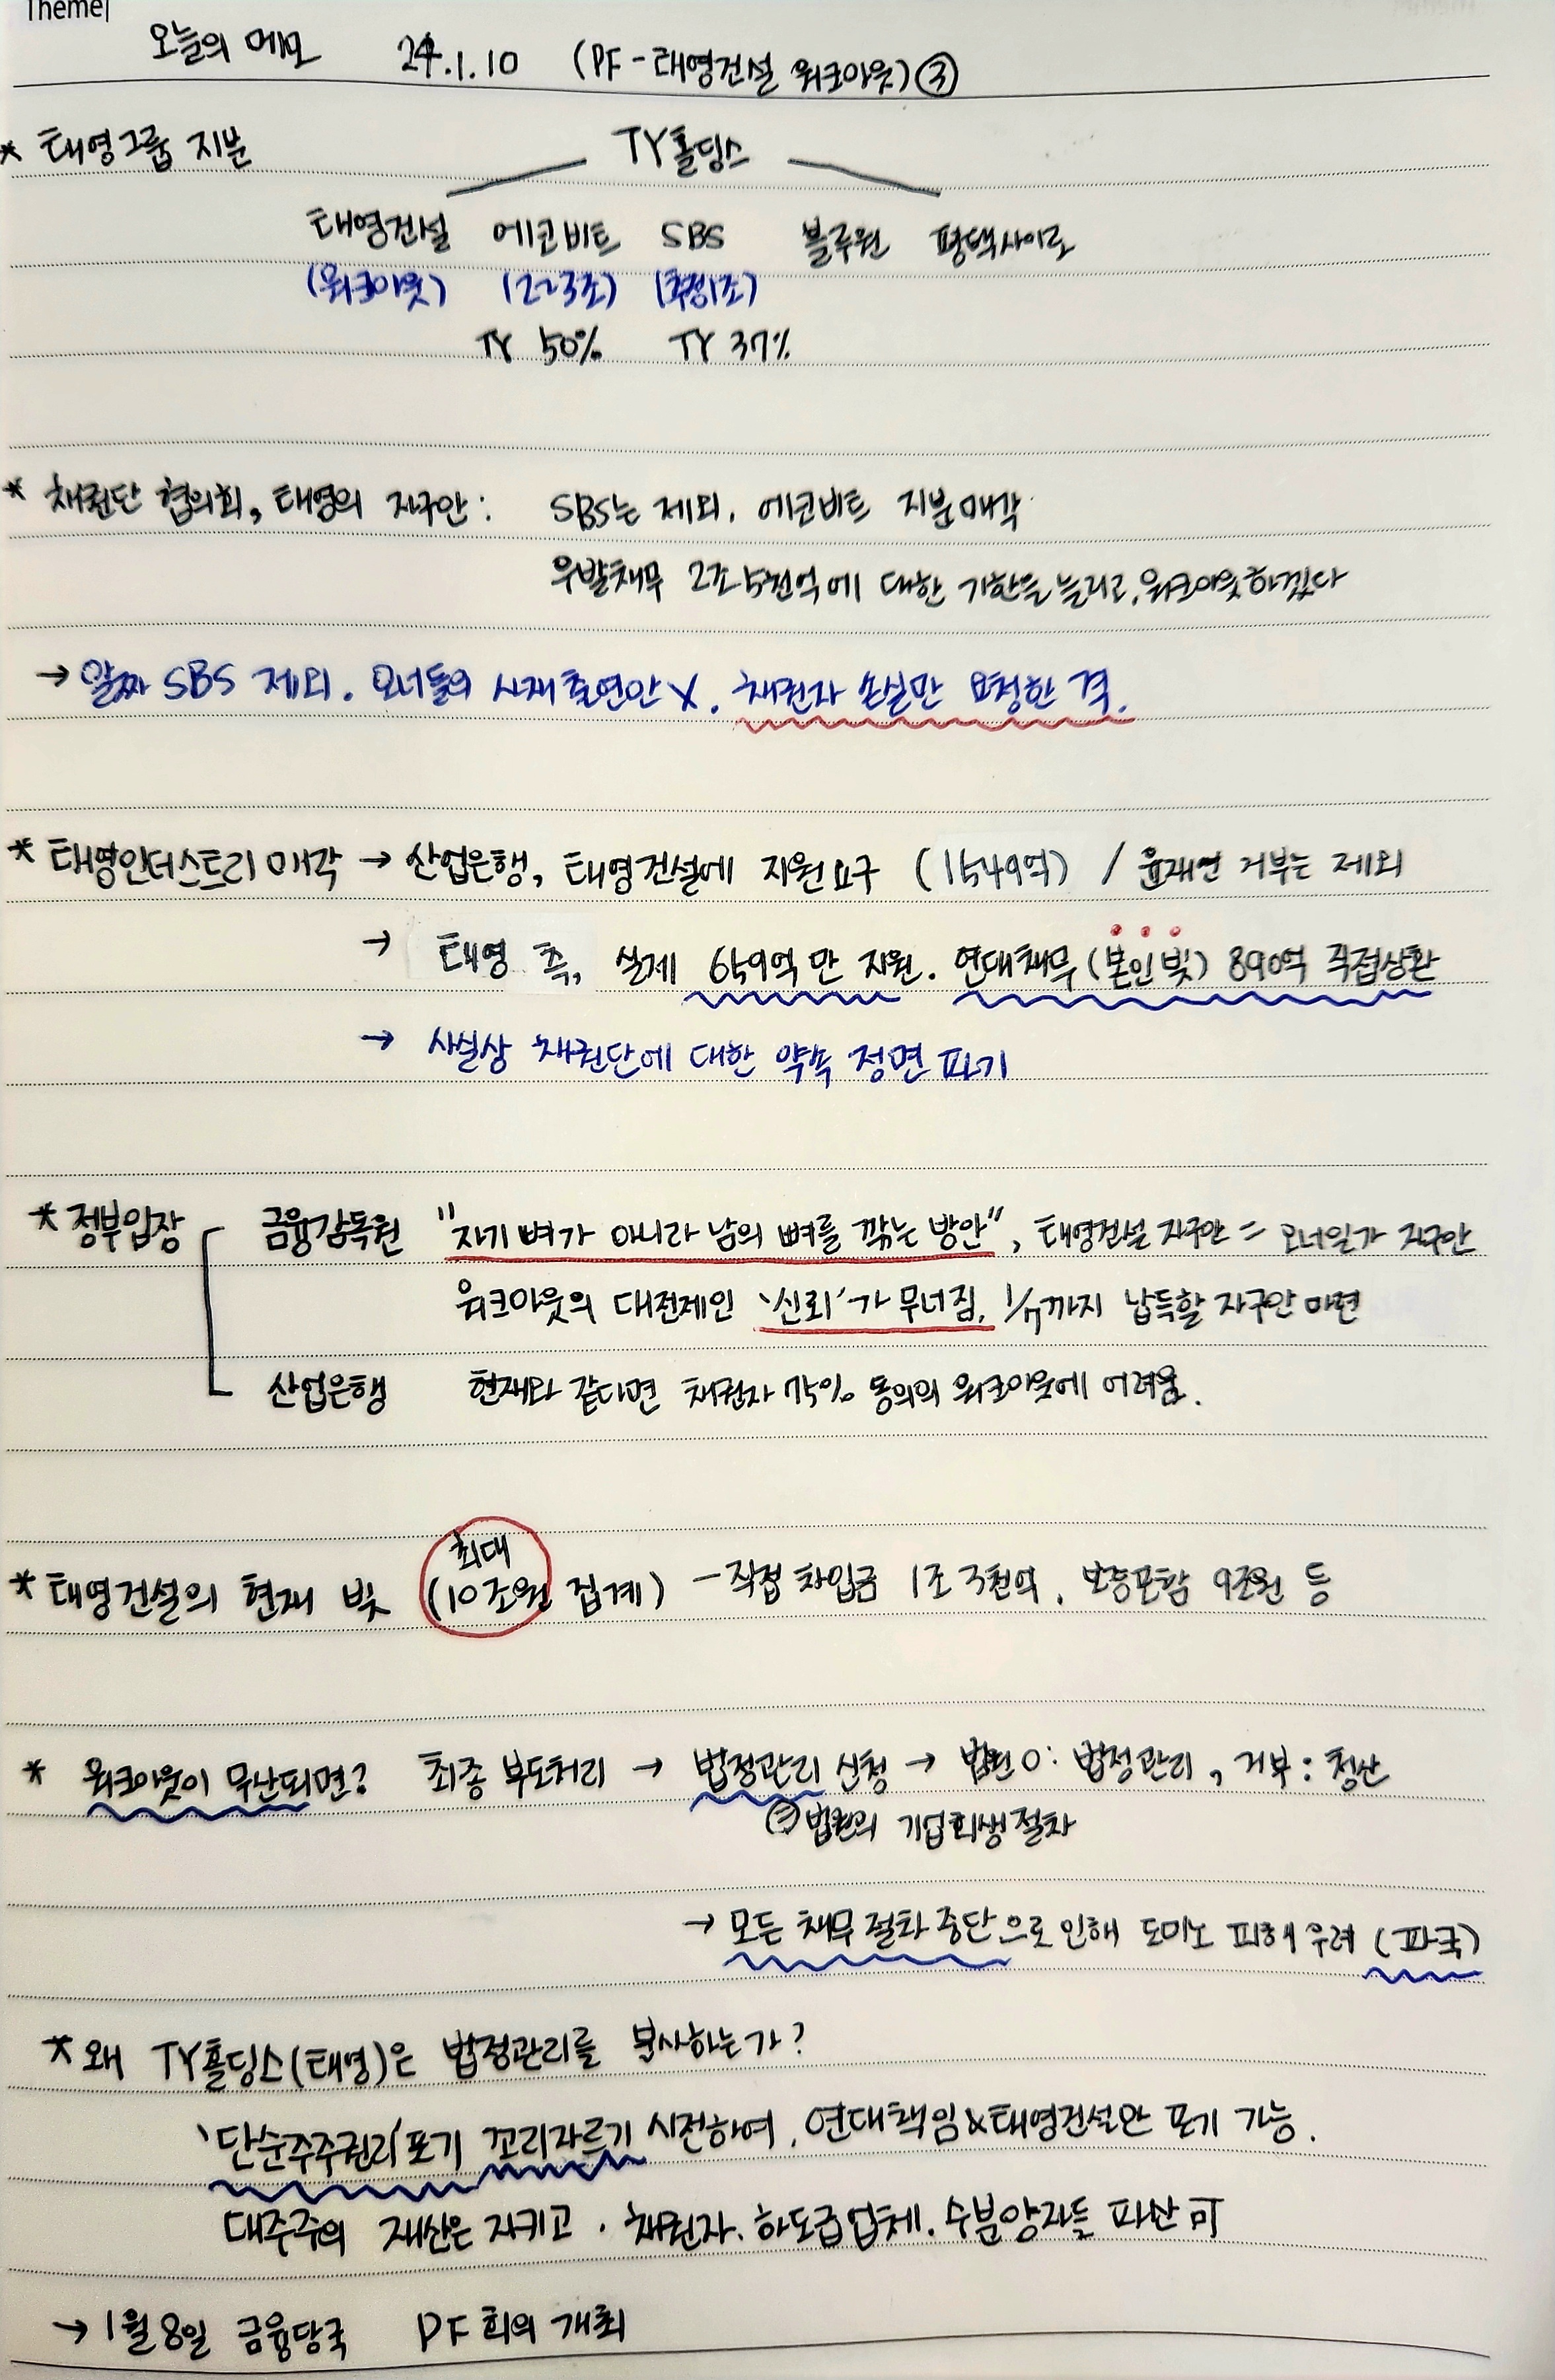 Theme
오늘의 메모 24.1.10 (PF-태영건설 워크아웃)③
* 태영그룹 지분 TY홀딩스
태영건설 에코비트 SBS 블루원 평택사이로
(워크아웃) (2~3조) (추정1조)
TY 50% TY 37%
* 채권단 협의회, 태영의 자구안 : SBS는 제외. 에코비트 지분매각
우발채무 2조5천억에 대한 기한을 늘리고, 워크아웃하겠다
→ 알짜 SBS 제외. 오너들의 사재출연안 X. 채권자 손실만 요청한 격.
* 태영인더스트리 매각 → 산업은행, 태영건설에 지원요구 (1549억) / 윤재연 거부는 제외
→ 태영 측, 실제 659억만 지원. 연대채무(본인빚) 890억 직접상환
→ 사실상 채권단에 대한 약속 정면 파기
* 정부입장 금융감독원 "자기 뼈가 아니라 남의 뼈를 깎는 방안", 태영건설 자구안 = 오너일가 자구안
워크아웃의 대전제인 '신뢰'가 무너짐. 1/7까지 납득할 자구안 마련
산업은행 현재와 같다면 채권자 75% 동의의 워크아웃에 어려움.
최대
* 태영건설의 현재 빚 (10조원 집계) - 직접 차입금 1조 3천억, 보증포함 9조원 등
* 워크아웃이 무산되면? 최종 부도처리 → 법정관리 신청 → 법원 O: 법정관리, 거부 : 청산
= 법원의 기업회생절차
→ 모든 채무 절차 중단으로 인해 도미노 피해 우려 (파국)
* 왜 TY홀딩스(태영)은 법정관리를 불사하는가?
'단순주주권리'포기 꼬리자르기 시전하여, 연대책임&태영건설만 포기 가능.
대주주의 재산은 지키고. 채권자. 하도급업체. 수분양자들 파산 可
→ 1월 8일 금융당국 PF 회의 개최